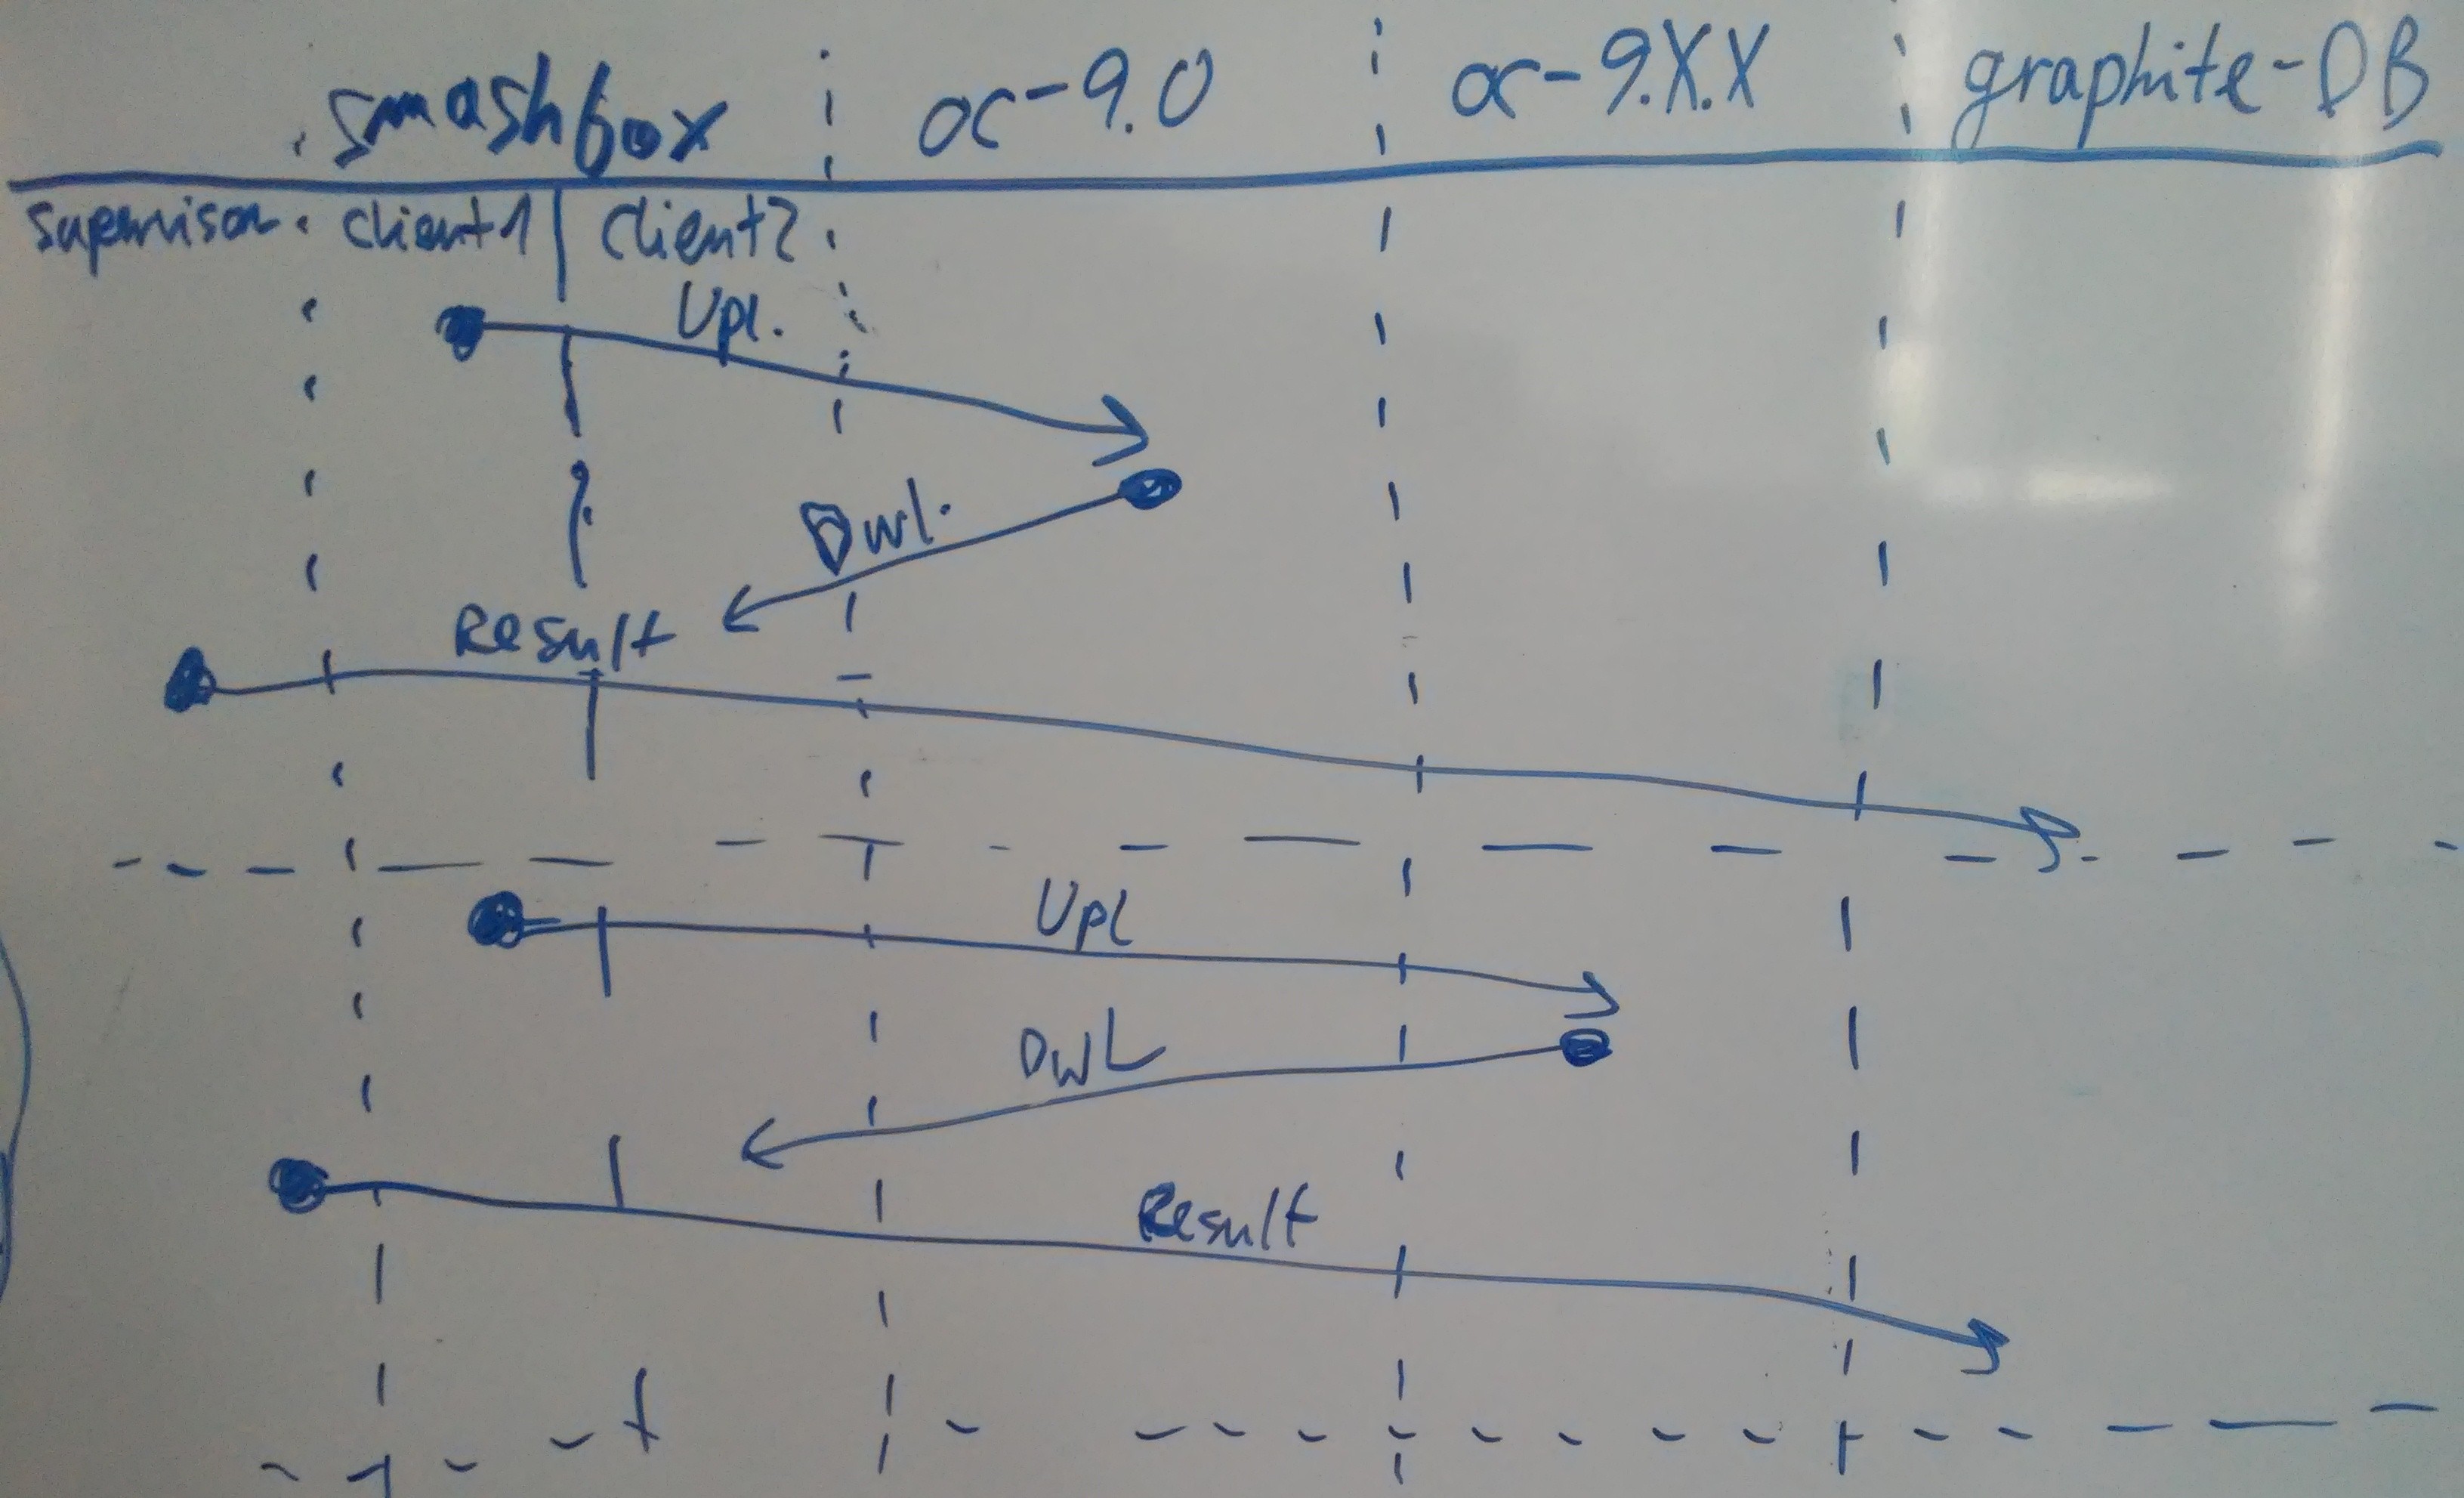 smashbox oc-9.0 oc-9.X.X graphite-DB
supervisor client1 client2
Upl.
Dwl.
Result
Upl
DWL
Result